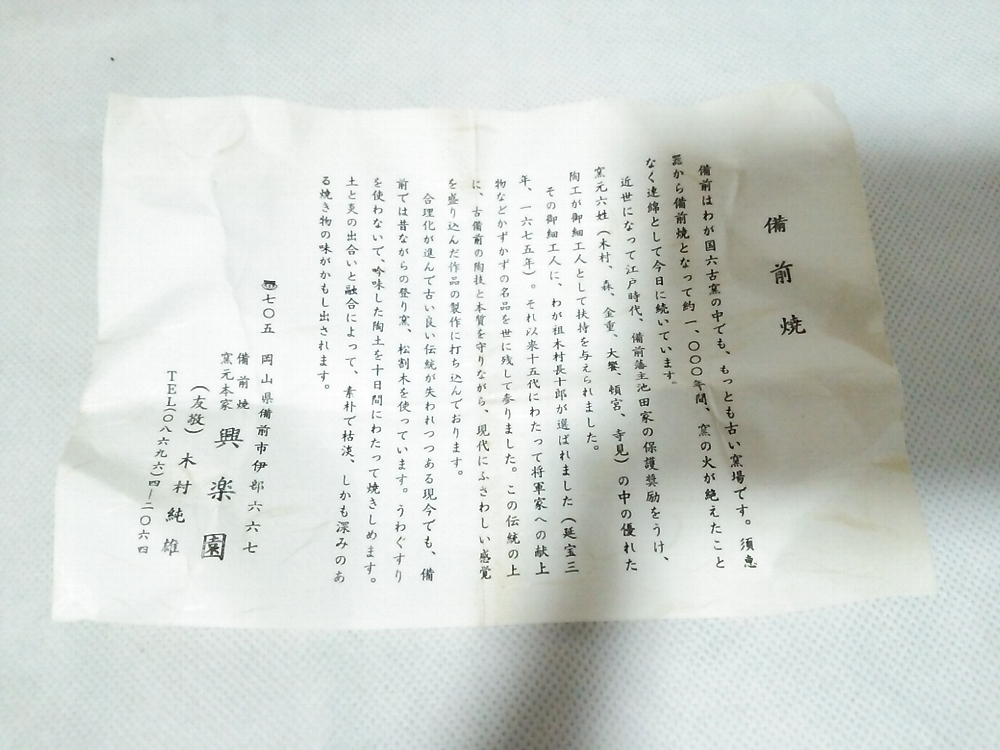 備前焼
備前はわが国六古窯の中でも、もっとも古い窯場です。須恵
器から備前焼となって約一、〇〇〇年間、窯の火が絶えたこと
なく連綿として今日に続いています。
近世になって江戸時代、備前藩主池田家の保護奨励をうけ、
窯元六姓（木村、森、金重、大饗、頓宮、寺見）の中の優れた
陶工が御細工人として扶持を与えられました。
その御細工人に、わが祖木村長十郎が選ばれました（延宝三
年、一六七五年）。それ以来十五代にわたって将軍家への献上
物などかずかずの名品を世に残して参りました。この伝統の上
に、古備前の陶技と本質を守りながら、現代にふさわしい感覚
を盛り込んだ作品の製作に打ち込んでおります。
合理化が進んで古い良い伝統が失われつつある現今でも、備
前では昔ながらの登り窯、松割木を使っています。うわぐすり
を使わないで、吟味した陶土を十日間にわたって焼きしめます。
土と炎の出合いと融合によって、素朴で枯淡、しかも深みのあ
る焼き物の味がかもし出されます。
〠七〇五 岡山県備前市伊部六六七
備前焼
窯元本家 興楽園
（友敬）木村純雄
TEL（〇八六九六）四―二〇六四